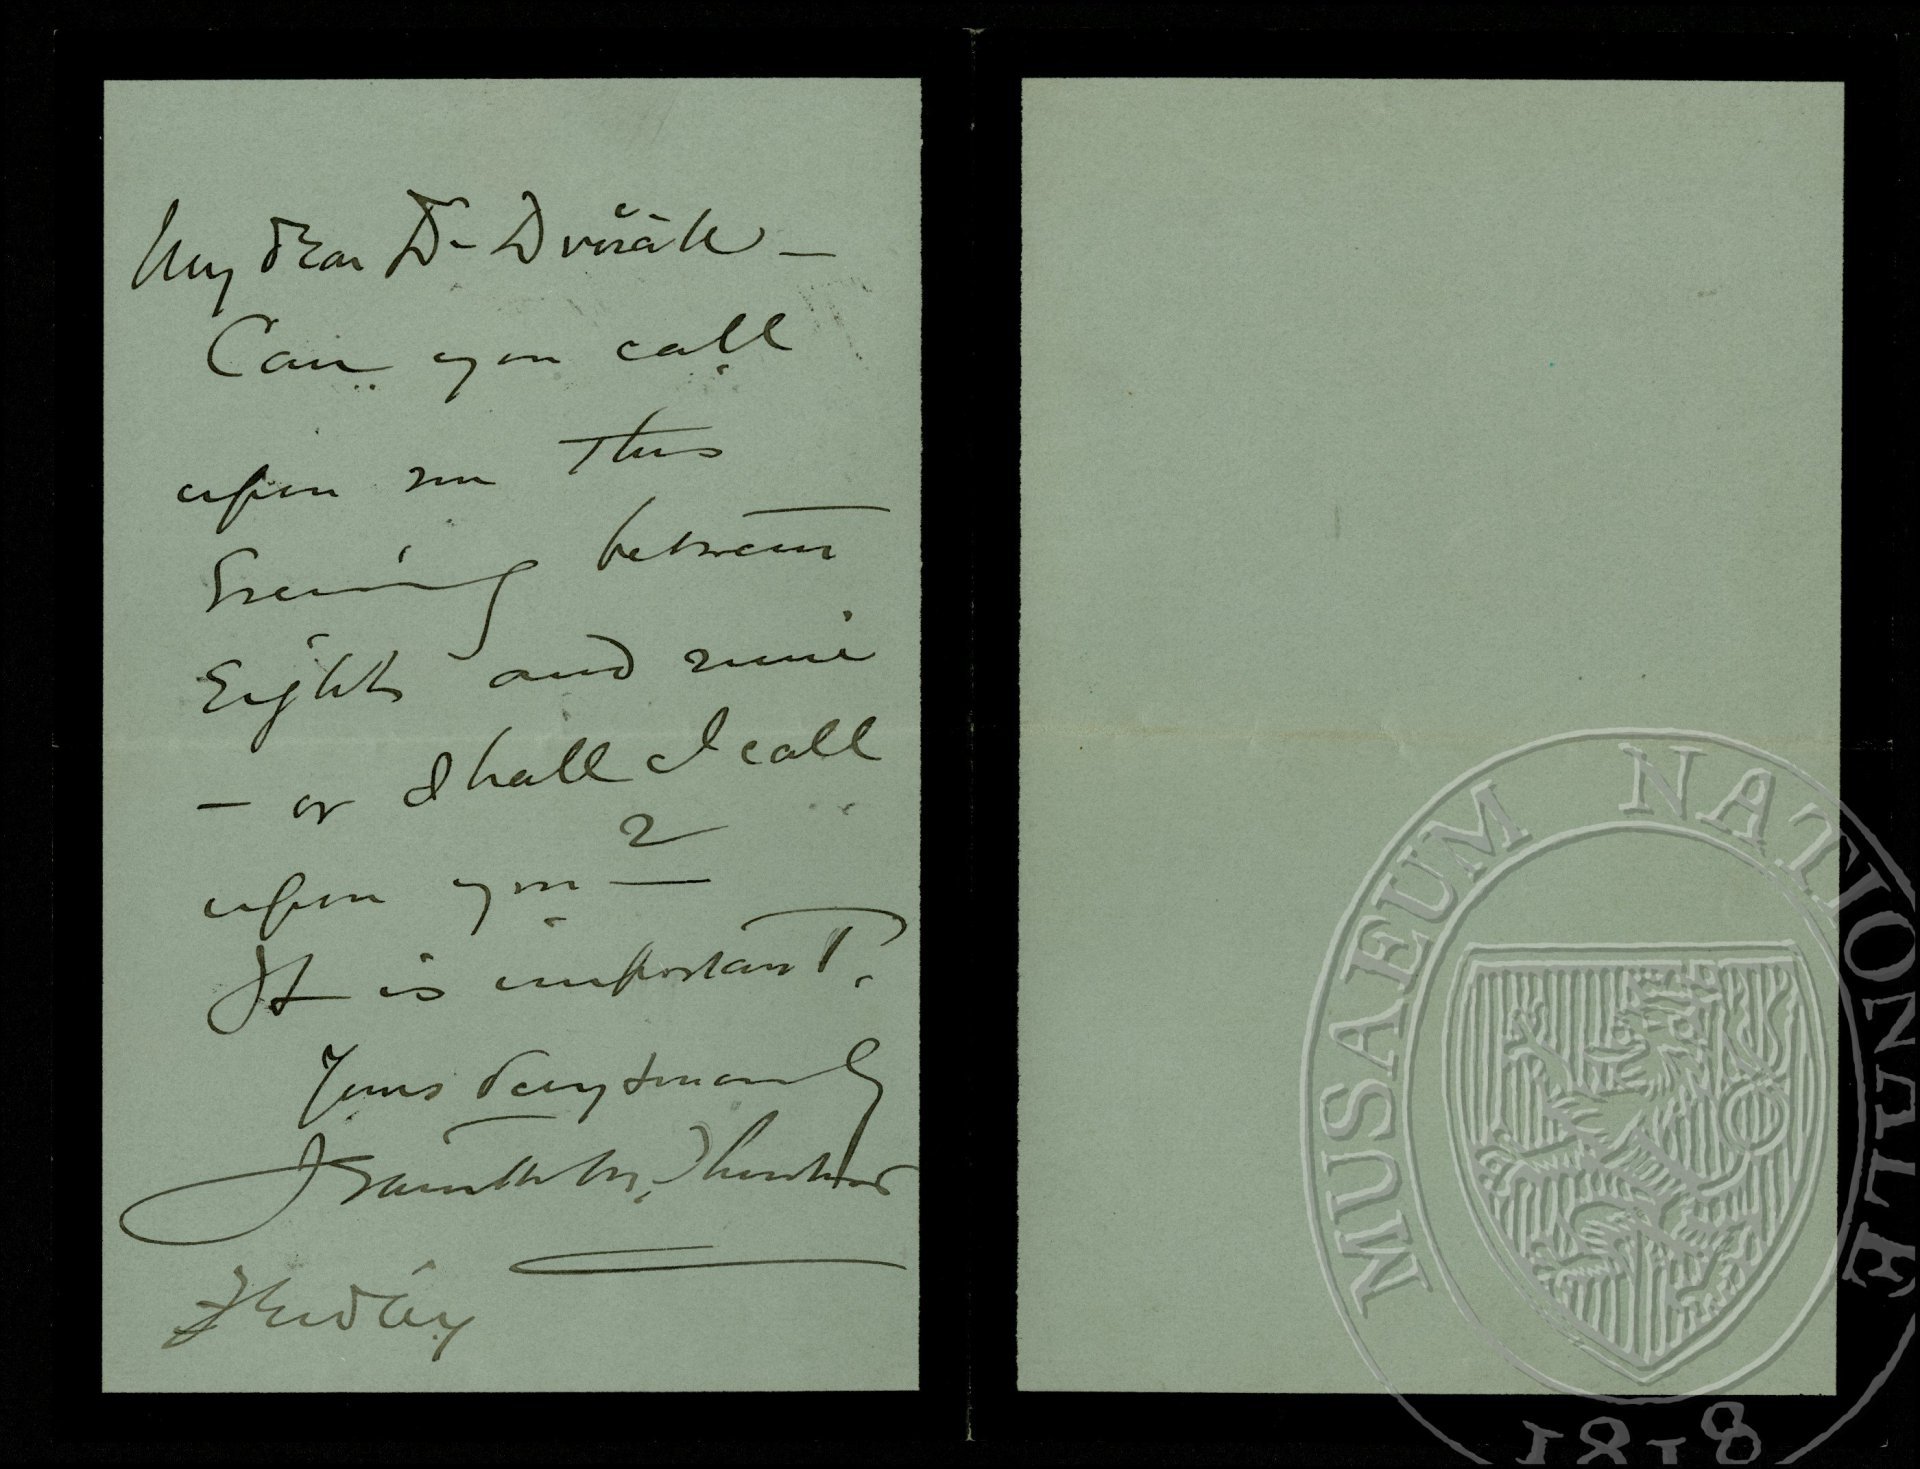 My dear Dr Dvořák —
Can you call
upon me this
Evening between
Eight and nine
— or shall I call
upon you ?
It is important.
Yours very sincerely
Jeannette M. Thurber
Friday
MUSAEUM NATIONALE
1818